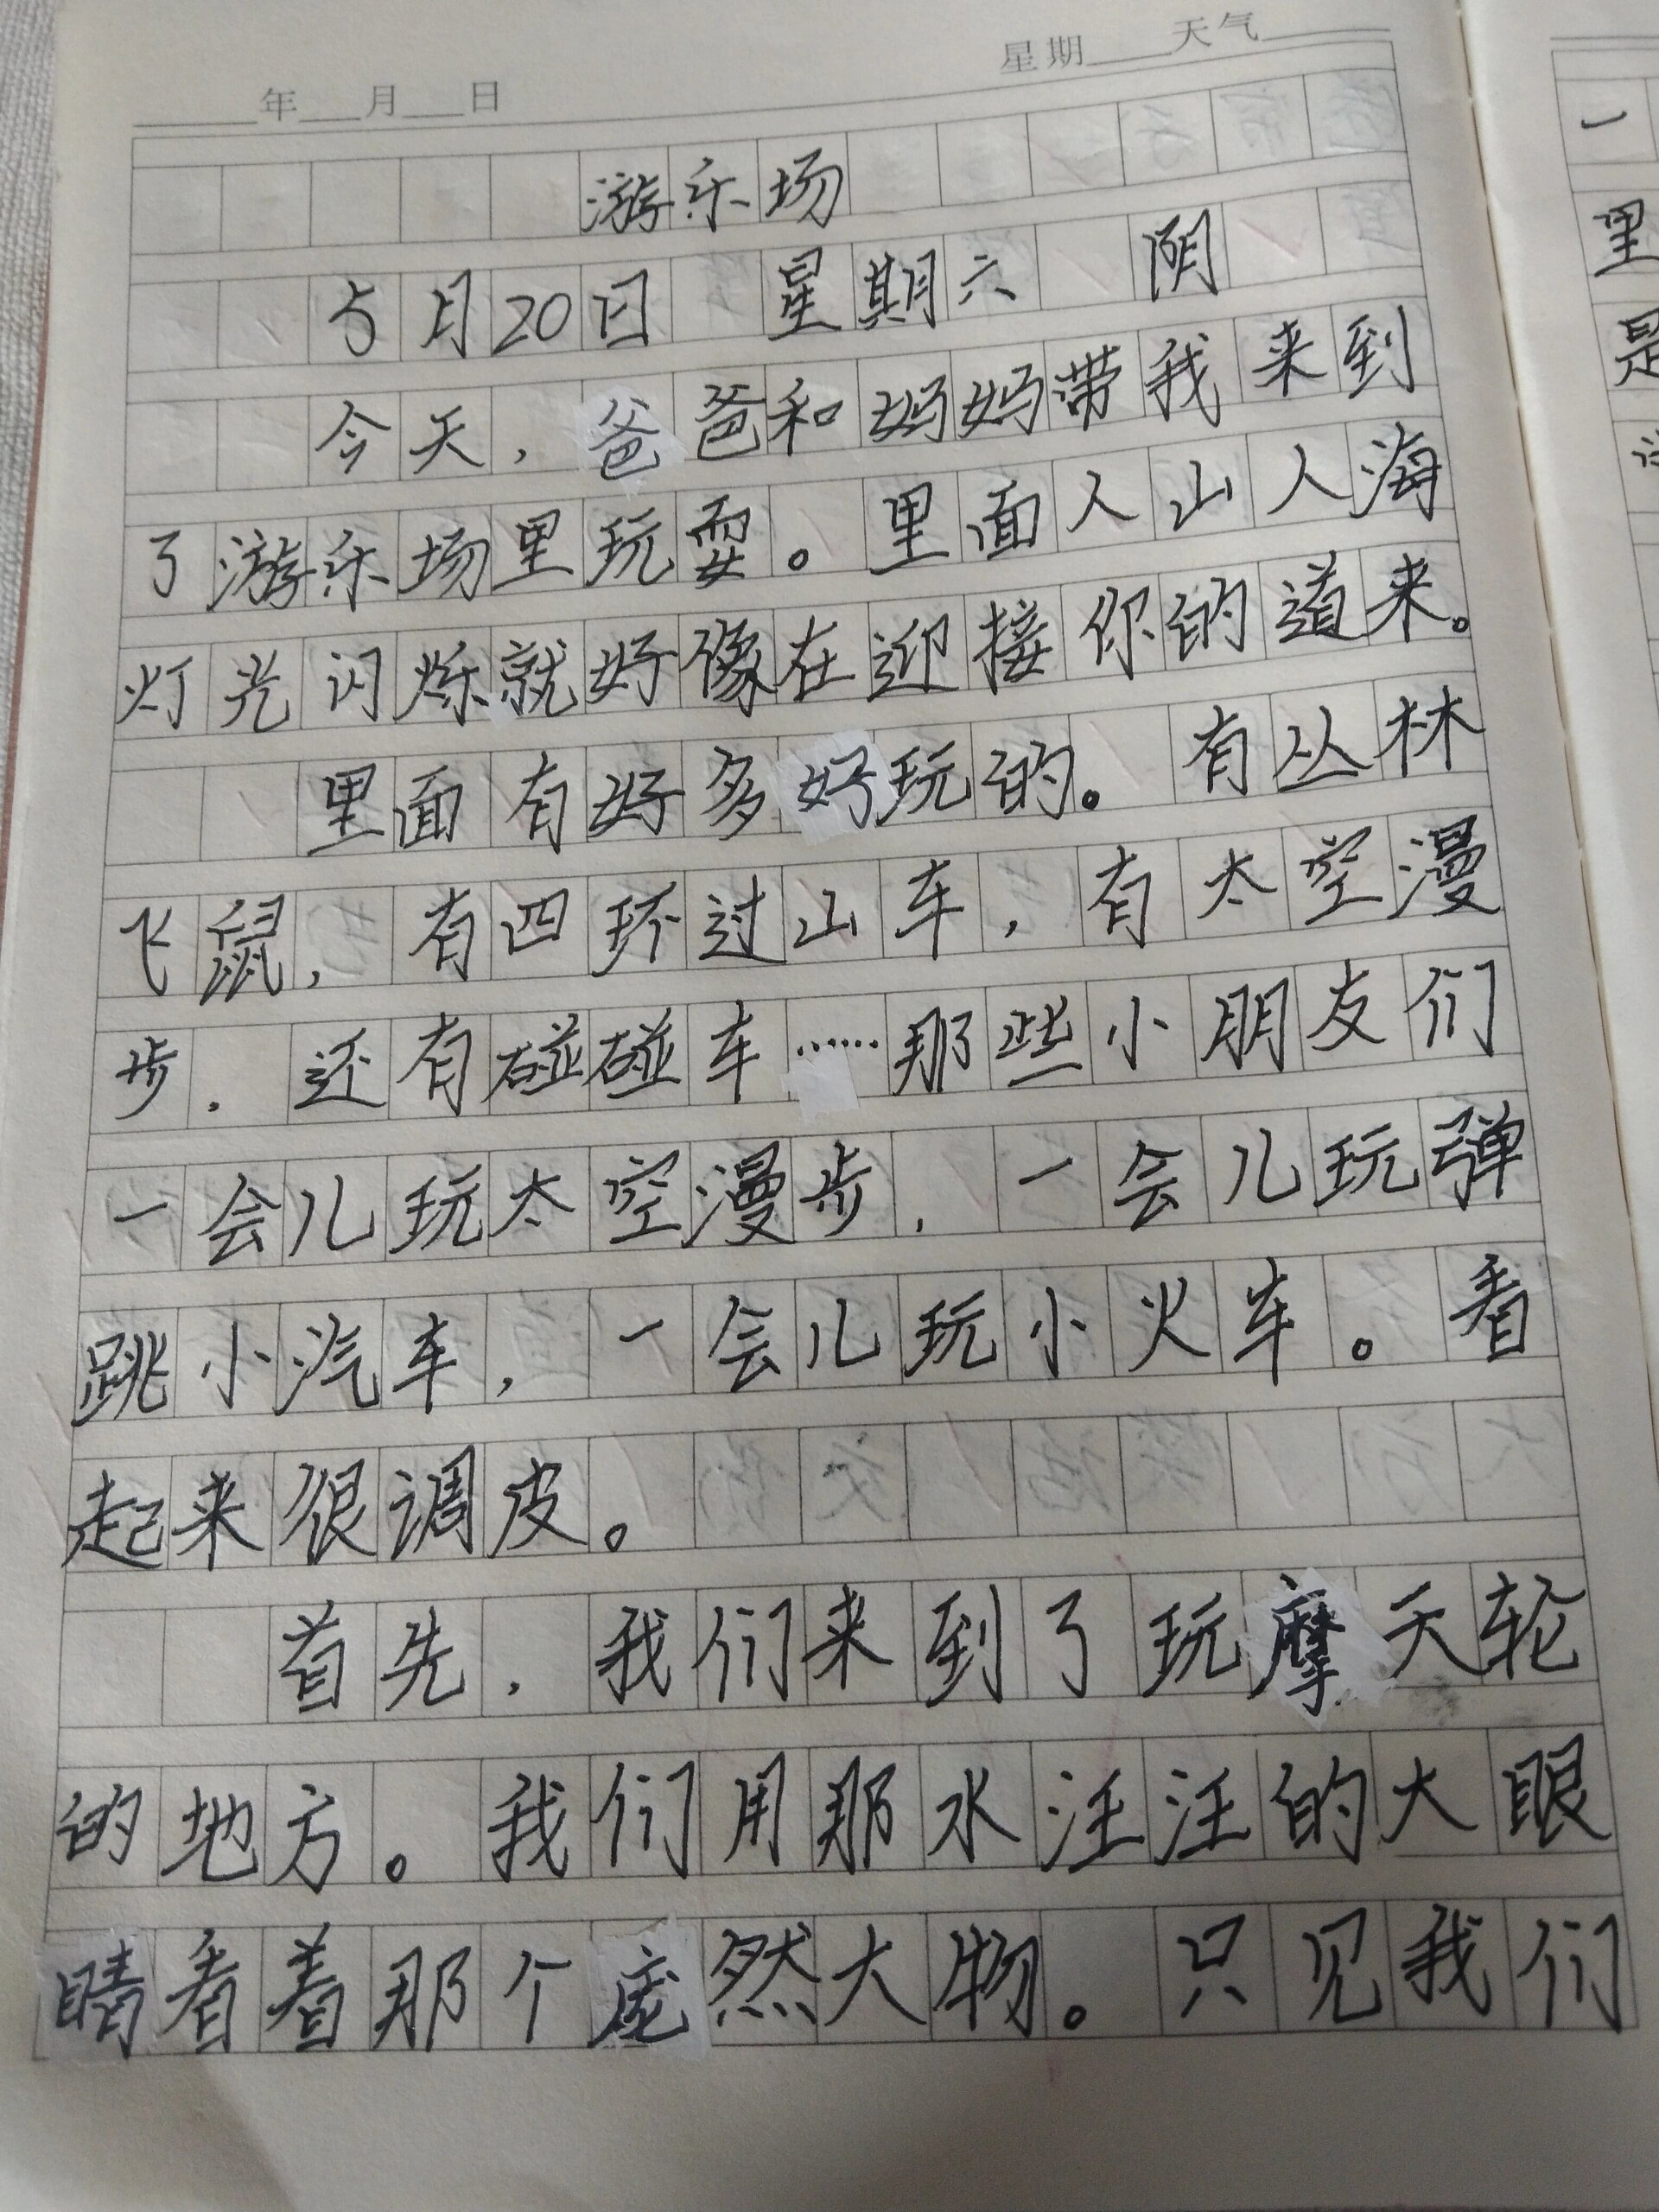 年 月 日 星期 天气
游乐场
5月20日 星期六 阴
今天，爸爸和妈妈带我来到
了游乐场里玩耍。里面人山人海
灯光闪烁就好像在迎接你的道来。
里面有好多好玩的。有丛林
飞鼠，有四环过山车，有太空漫
步，还有碰碰车……那些小朋友们
一会儿玩太空漫步，一会儿玩弹
跳小汽车，一会儿玩小火车。看
起来很调皮。
首先，我们来到了玩摩天轮
的地方。我们用那水汪汪的大眼
睛看着那个庞然大物。只见我们
一
里
是